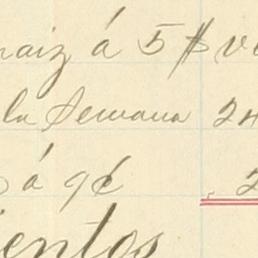 maiz á 5 $ v
la Semana 24
o á 9¢ 2
ientos